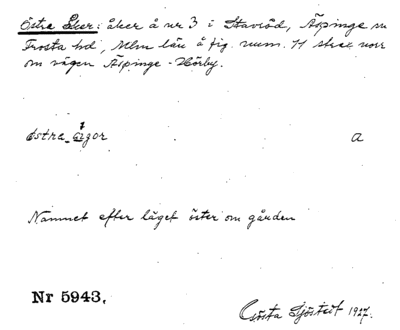 Östra Leer: åker å nr 3 i Stavröd, Äspinge sn
Frosta hd, Mlm län å fig. num. 71 strax norr
om vägen Äspinge - Hörby.
östra a
Namnet efter läget öster om gården
Nr 5943.
Gösta Sjöstedt 1927.